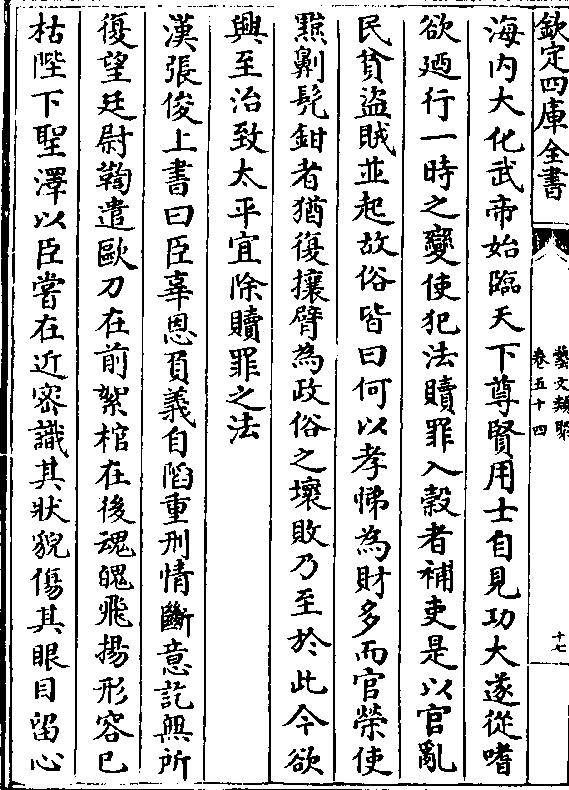 欽定四庫全書
藝文類聚
卷五十四
十七
海内大化武帝始臨天下尊賢用士自見功大遂從嗜
欲廼行一時之變使犯法贖罪入穀者補吏是以官亂
民貧盜賊並起故俗皆曰何以孝悌為財多而官榮使
黥劓髡鉗者猶復攘臂為政俗之壞敗乃至於此今欲
興至治致太平宜除贖罪之法
漢張俊上書曰臣辜恩負義自陷重刑情斷意訖無所
復望廷尉鞫遣歐刀在前絮棺在後魂魄飛揚形容已
枯陛下聖澤以臣嘗在近密識其狀貌傷其眼目留心